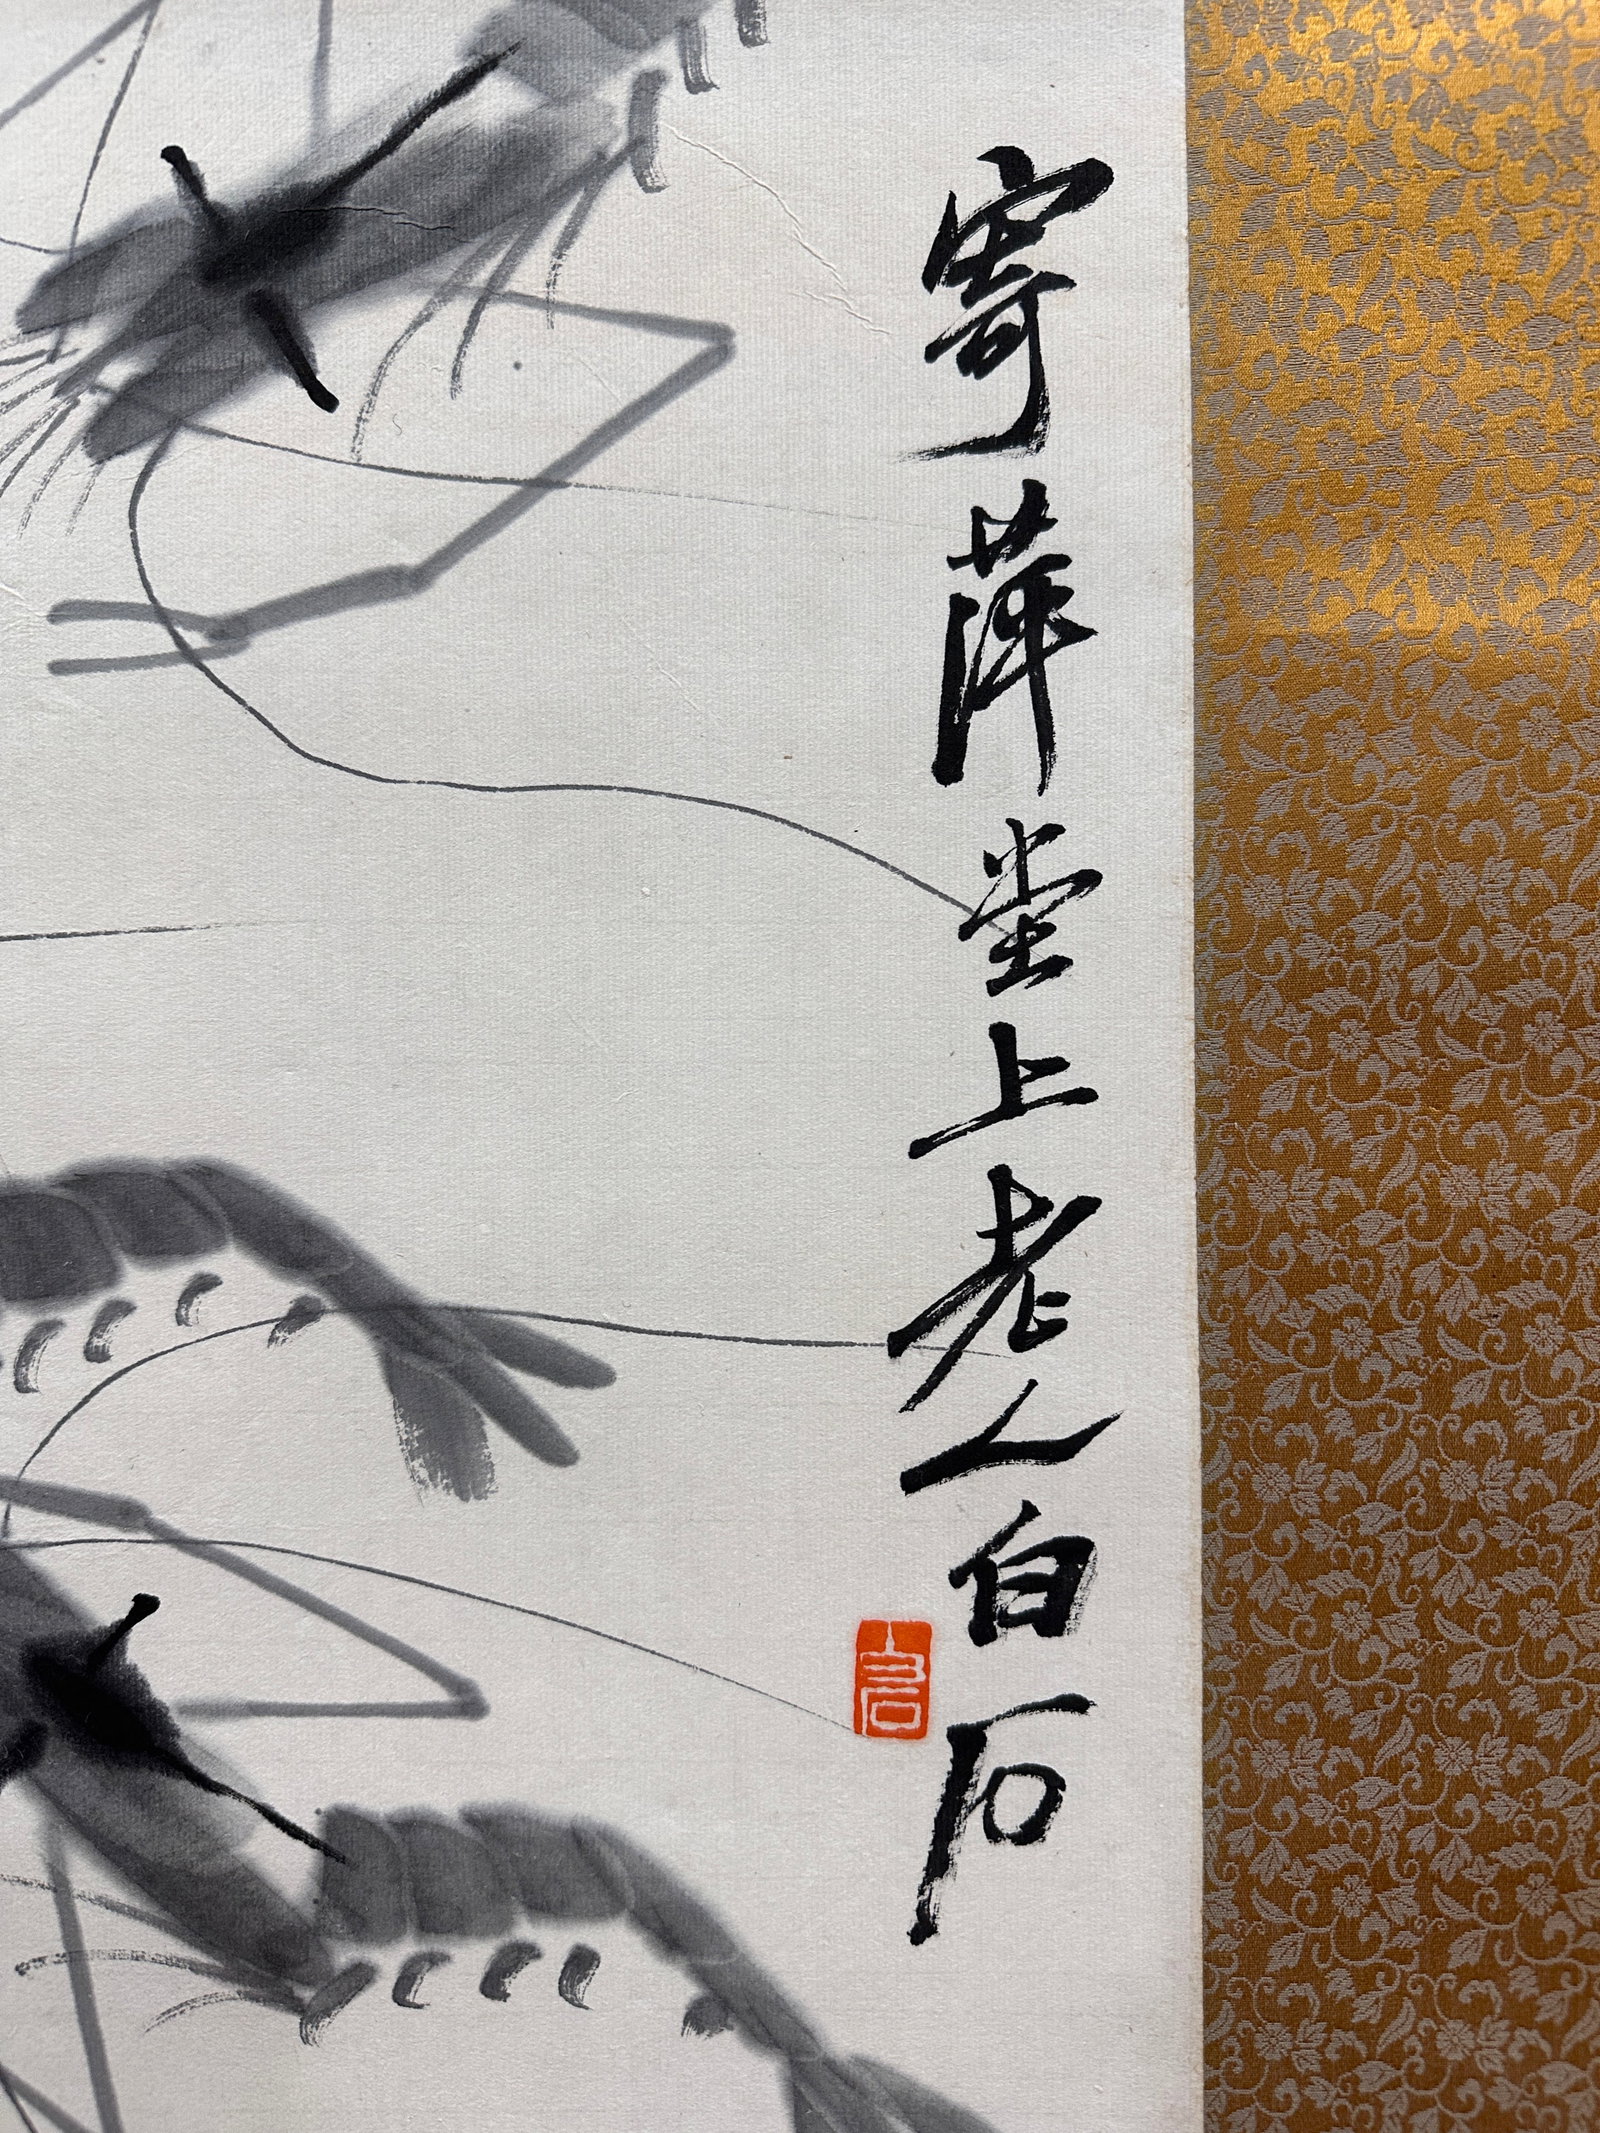 寄萍堂上老人白石
白石